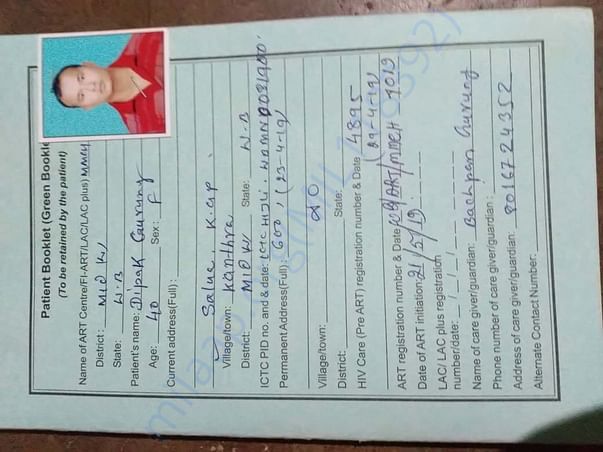 Patient Booklet (Green Bookle
(To be retained by the patient)
Name of ART Centre/FI-ART/LAC/LAC plus) MMCH
District:
State: W.B
Patient's name: Dipak Gurung
Age: 40 Sex: F
Current address(Full):
Village/town: Kanthra
District: State: W.B
ICTC PID no. and & date:
Permanent Address(Full): 600, (23-4-19)
Village/town:
District: State:
HIV Care (Pre ART) registration number & Date 4895
(29-4-19)
ART registration number & Date WB/ART/MMCH 1019
Date of ART Initiation: 21/5/19
LAC/ LAC plus registration
number/date: / /
Name of care giver/guardian: Bachpan Gurung
Phone number of care giver/guardian:
Address of care giver/guardian: 8016724352
Alternate Contact Number: